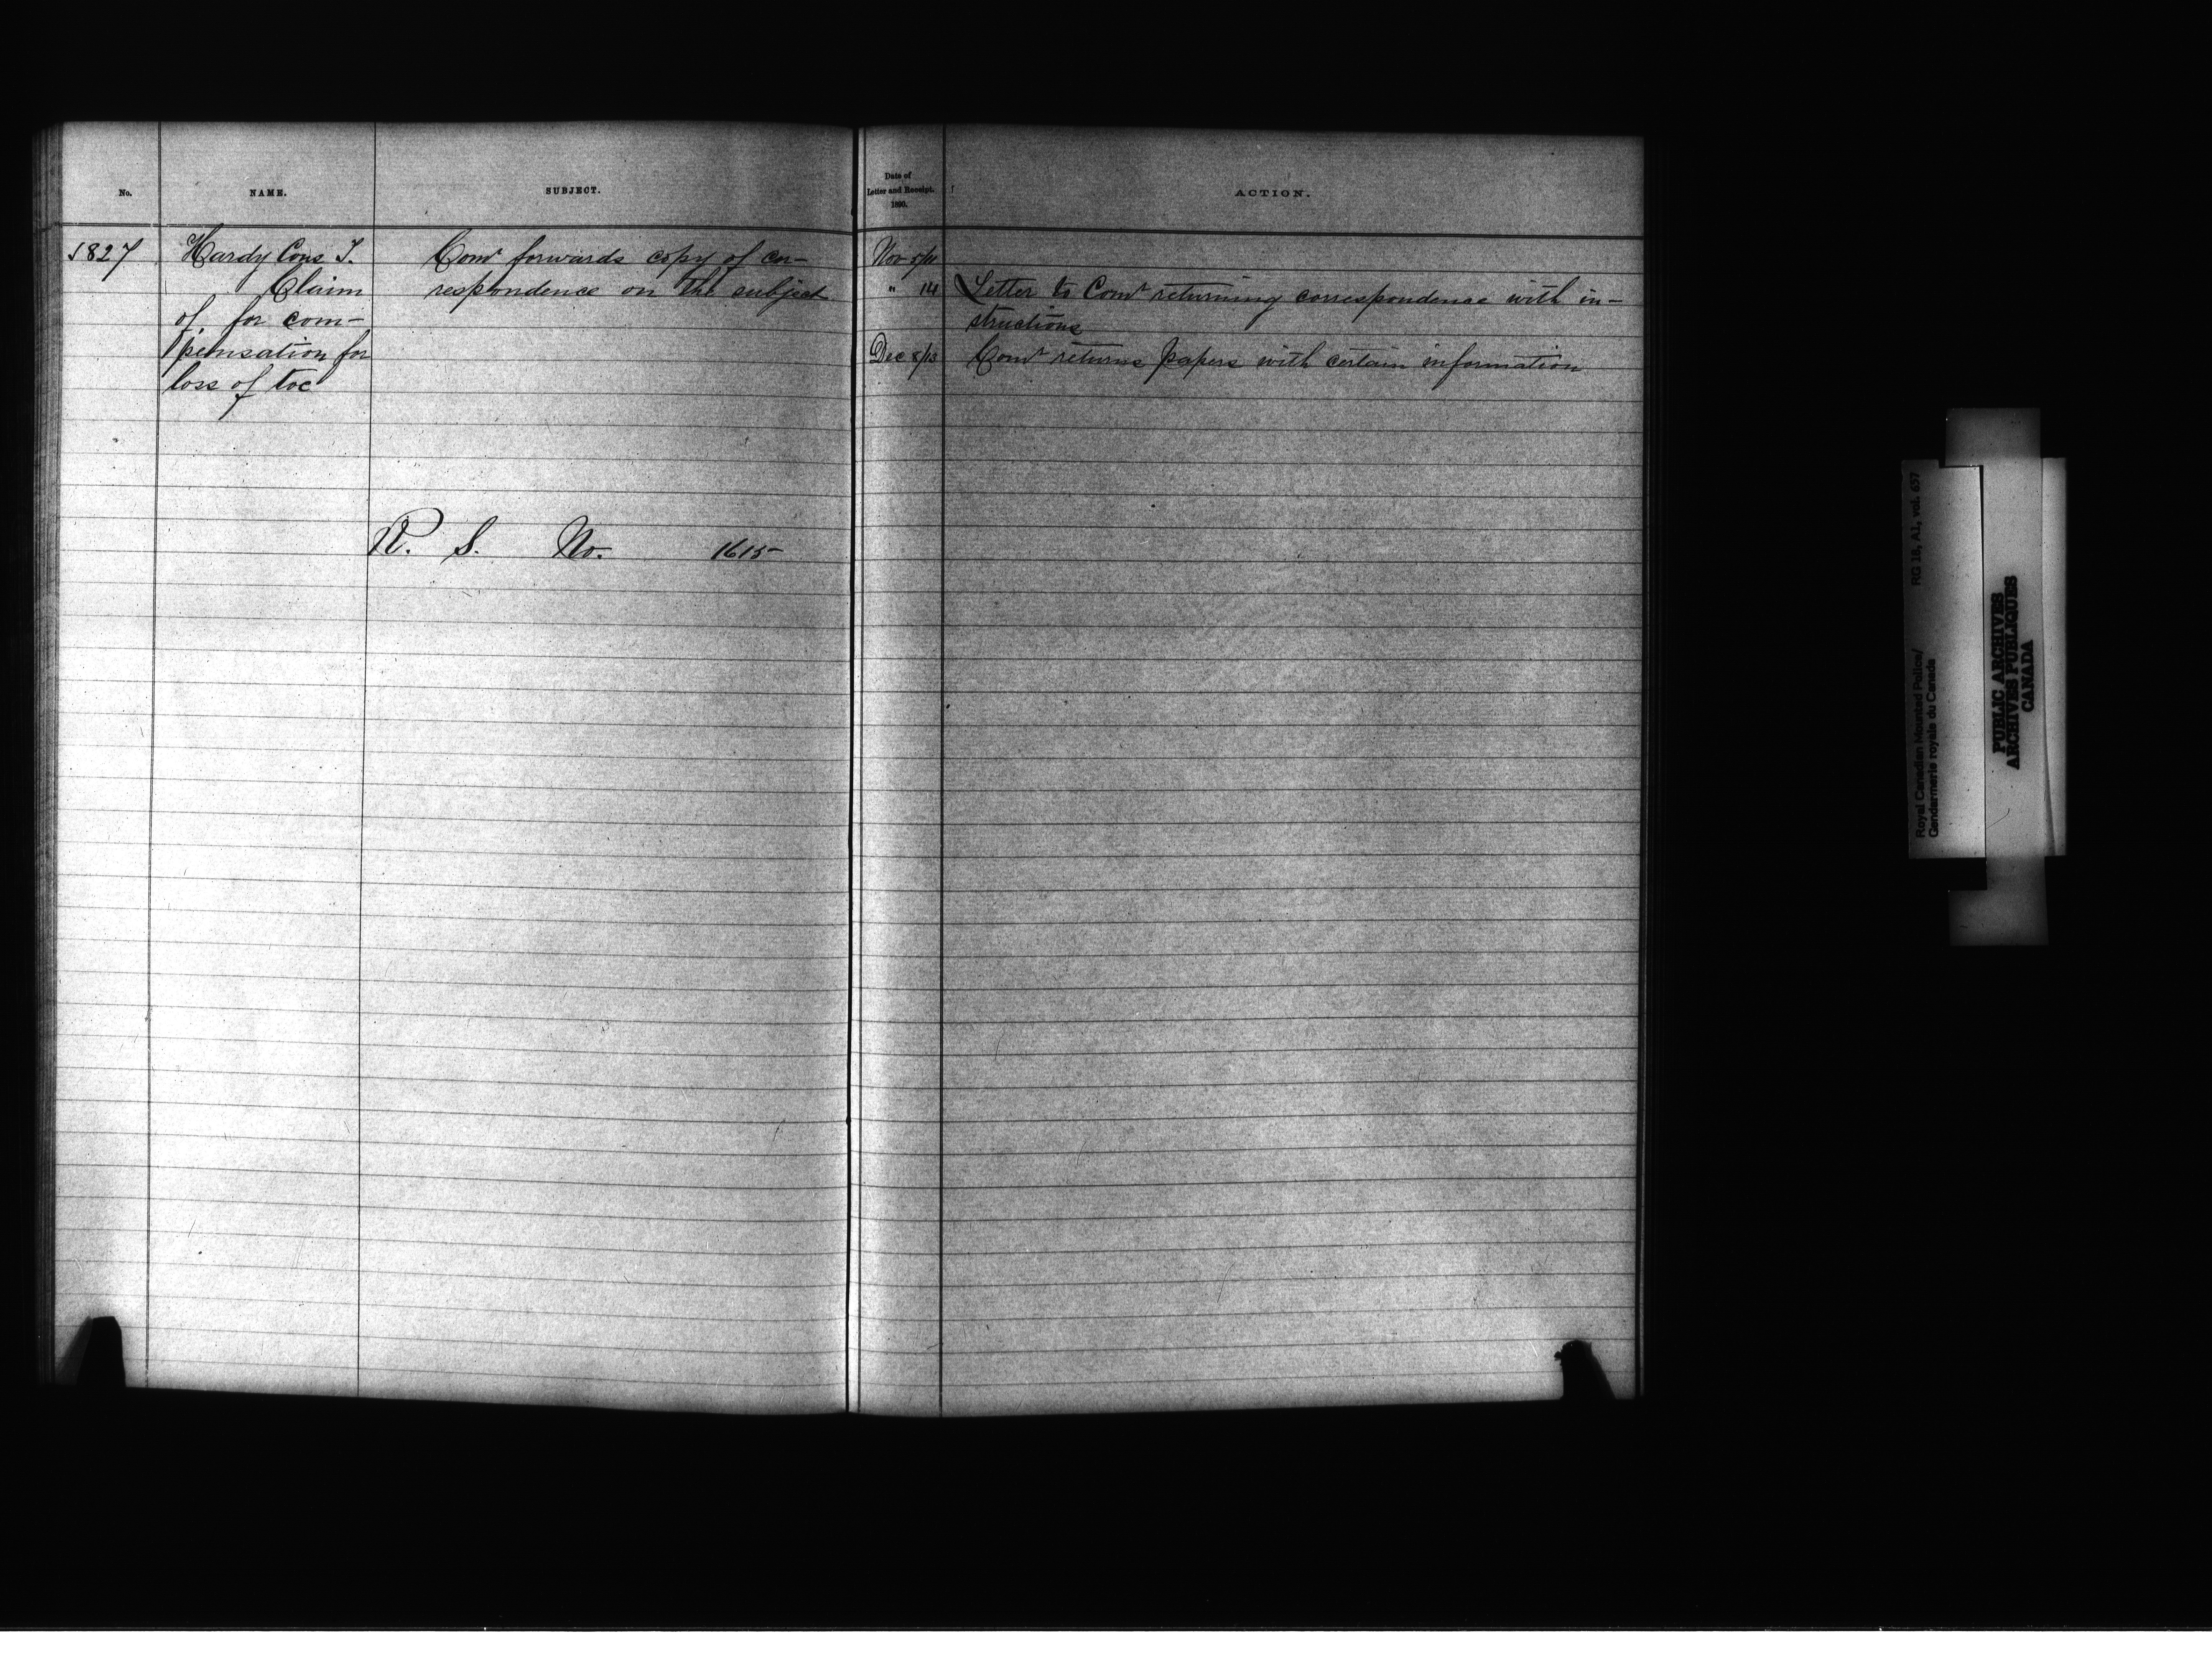 No.
NAME.
SUBJECT.
Date of
Letter and Receipt.
1890.
ACTION.
1827
Hardy Cons T.
Claim
of for com-
pensation for
loss of toe
Comr forwards copy of cor-
respondence on the subject
R. S. No. 1615
Nov 5/11
" 14 Letter to Comr returning correspondence with in-
structions
Dec 8/13 Comr returns papers with certain information
RG 18, A1, vol. 657
Royal Canadian Mounted Police/
Gendarmerie royale du Canada
PUBLIC ARCHIVES
ARCHIVES PUBLIQUES
CANADA